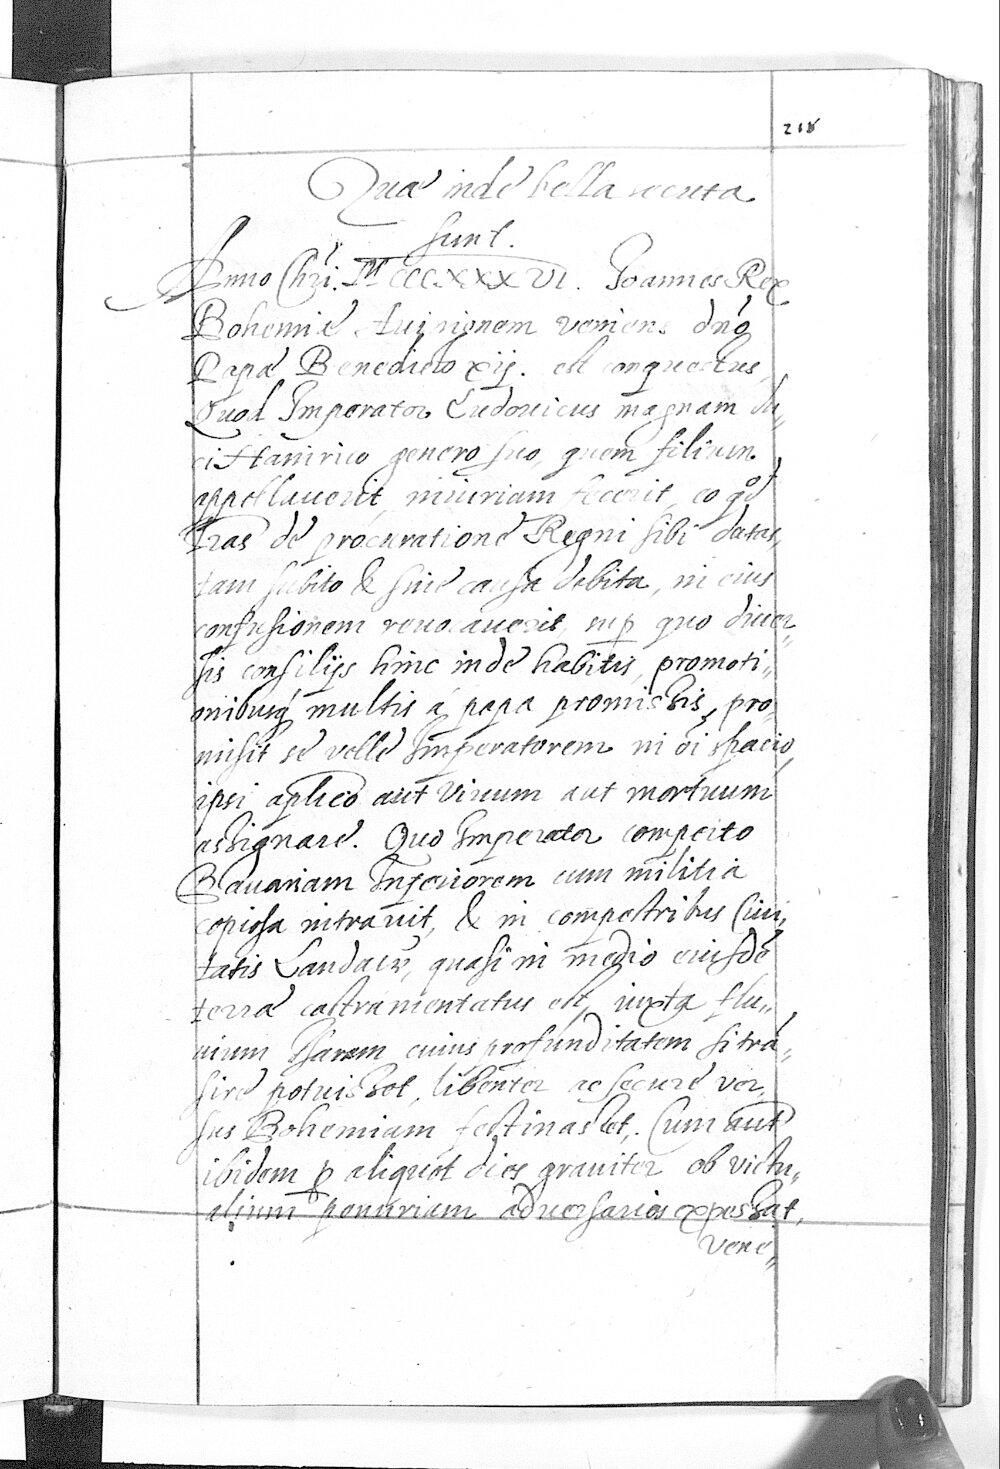 218
Quæ inde bella secuta
sunt.
Anno Chri. M CCCXXXVI. Joannes Rex
Bohemie Avinionem veniens dno
Papæ Benedicto xij. est conquestus,
Quod Imperator Ludovicus magnam du„
ci Hainrico genero suo, quem filium
appellauerit, iniuriam fecerit, eo qd
lras de procuratione Regni sibi datas,
tam subito & sine causa debita, in eius
confusionem reuocauerit, sup quo diuer„
sis consilijs hinc inde habitis, promoti„
onibusq multis á papa promissis, pro„
misit se velle Imperatorem in oi spacio,
ipsi aplico aut vivum aut mortuum
assignare. Quo Imperator comperto
Bavariam Inferiorem cum militia
copiosa intravit, & in campestribus Civi„
tatis Landaw, quasi in medio eiusdé
terræ castramentatus est, iuxta flu„
uium Isaram cuius profunditatem si trá„
sire potuisset, libenter ac secure ver„
sus Bohemiam festinasset. Cum aut
ibidem p aliquot dies graviter ob victu„
alium penuriam adversarios expectat,
vene„